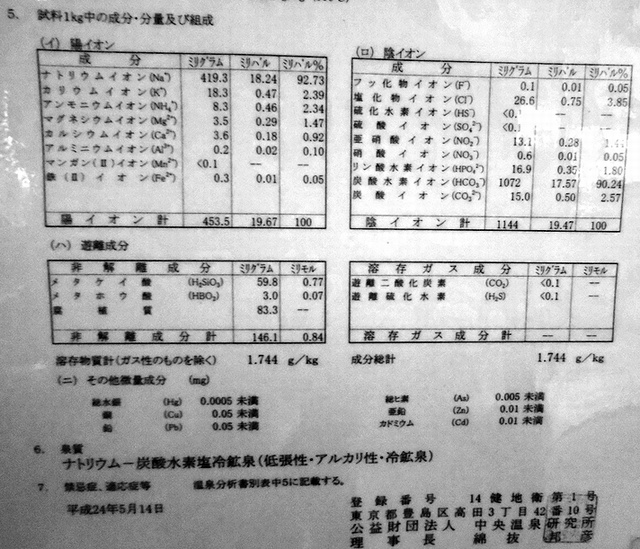 5. 試料1kg中の成分・分量及び組成
(イ) 陽イオン
成分 ミリグラム ミリバル ミリバル%
ナトリウムイオン(Na⁺) 419.3 18.24 92.73
カリウムイオン(K⁺) 18.3 0.47 2.39
アンモニウムイオン(NH₄⁺) 8.3 0.46 2.34
マグネシウムイオン(Mg²⁺) 3.5 0.29 1.47
カルシウムイオン(Ca²⁺) 3.6 0.18 0.92
アルミニウムイオン(Al³⁺) 0.2 0.02 0.10
マンガン(Ⅱ)イオン(Mn²⁺) <0.1 -- --
鉄(Ⅱ)イオン(Fe²⁺) 0.3 0.01 0.05
陽イオン計 453.5 19.67 100
(ロ) 陰イオン
成分 ミリグラム ミリバル ミリバル%
フッ化物イオン(F⁻) 0.1 0.01 0.05
塩化物イオン(Cl⁻) 26.6 0.75 3.85
硫化水素イオン(HS⁻) <0.1 -- --
硫酸イオン(SO₄²⁻) <0.1 -- --
亜硝酸イオン(NO₂⁻) 13.1 0.28
硝酸イオン(NO₃⁻) 0.6 0.01 0.05
リン酸水素イオン(HPO₄²⁻) 16.9 0.35 1.80
炭酸水素イオン(HCO₃⁻) 1072 17.57 90.24
炭酸イオン(CO₃²⁻) 15.0 0.50 2.57
陰イオン計 1144 19.47 100
(ハ) 遊離成分
非解離成分 ミリグラム ミリモル
メタケイ酸 (H₂SiO₃) 59.8 0.77
メタホウ酸 (HBO₂) 3.0 0.07
腐植質 83.3 --
非解離成分計 146.1 0.84
溶存ガス成分 ミリグラム ミリモル
遊離二酸化炭素 (CO₂) <0.1 --
遊離硫化水素 (H₂S) <0.1 --
溶存ガス成分計 -- --
溶存物質計(ガス性のものを除く) 1.744 g/kg
成分総計 1.744 g/kg
(ニ) その他微量成分 (mg)
総水銀 (Hg) 0.0005 未満
銅 (Cu) 0.05 未満
鉛 (Pb) 0.05 未満
総ヒ素 (As) 0.005 未満
亜鉛 (Zn) 0.01 未満
カドミウム (Cd) 0.01 未満
6. 泉質
ナトリウム－炭酸水素塩冷鉱泉(低張性・アルカリ性・冷鉱泉)
7. 禁忌症、適応症等 温泉分析書別表中5に記載する。
平成24年5月14日
登録番号 14健地衛第1号
東京都豊島区高田3丁目42番10号
公益財団法人 中央温泉研究所
理事長 綿抜邦彦